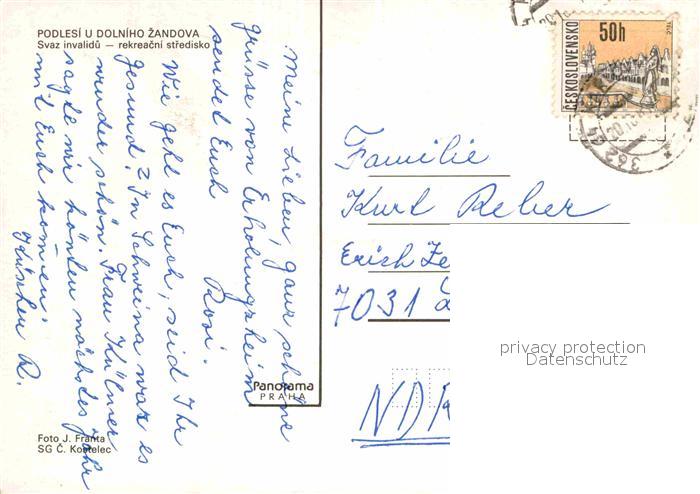 PODLESÍ U DOLNÍHO ŽANDOVA
Svaz invalidů — rekreační středisko
Meine Lieben, ganz schöne
grüsse von Erholungsheim
sendet Euch
Rosi.
Wie geht es Euch, seid Ihr
gesund? In Schweina war es
wunder schön. Frau Küllmer
sagte wir könten nächstes Jahr
mit Euch kommen.
Küsschen R.
Panorama
PRAHA
Foto J. Franta
SG Č. Kostelec
ČESKOSLOVENSKO
50h
TELČ
362 64
Familie
Kurt Reber
Erich Ze
7031
NDR
privacy protection
Datenschutz